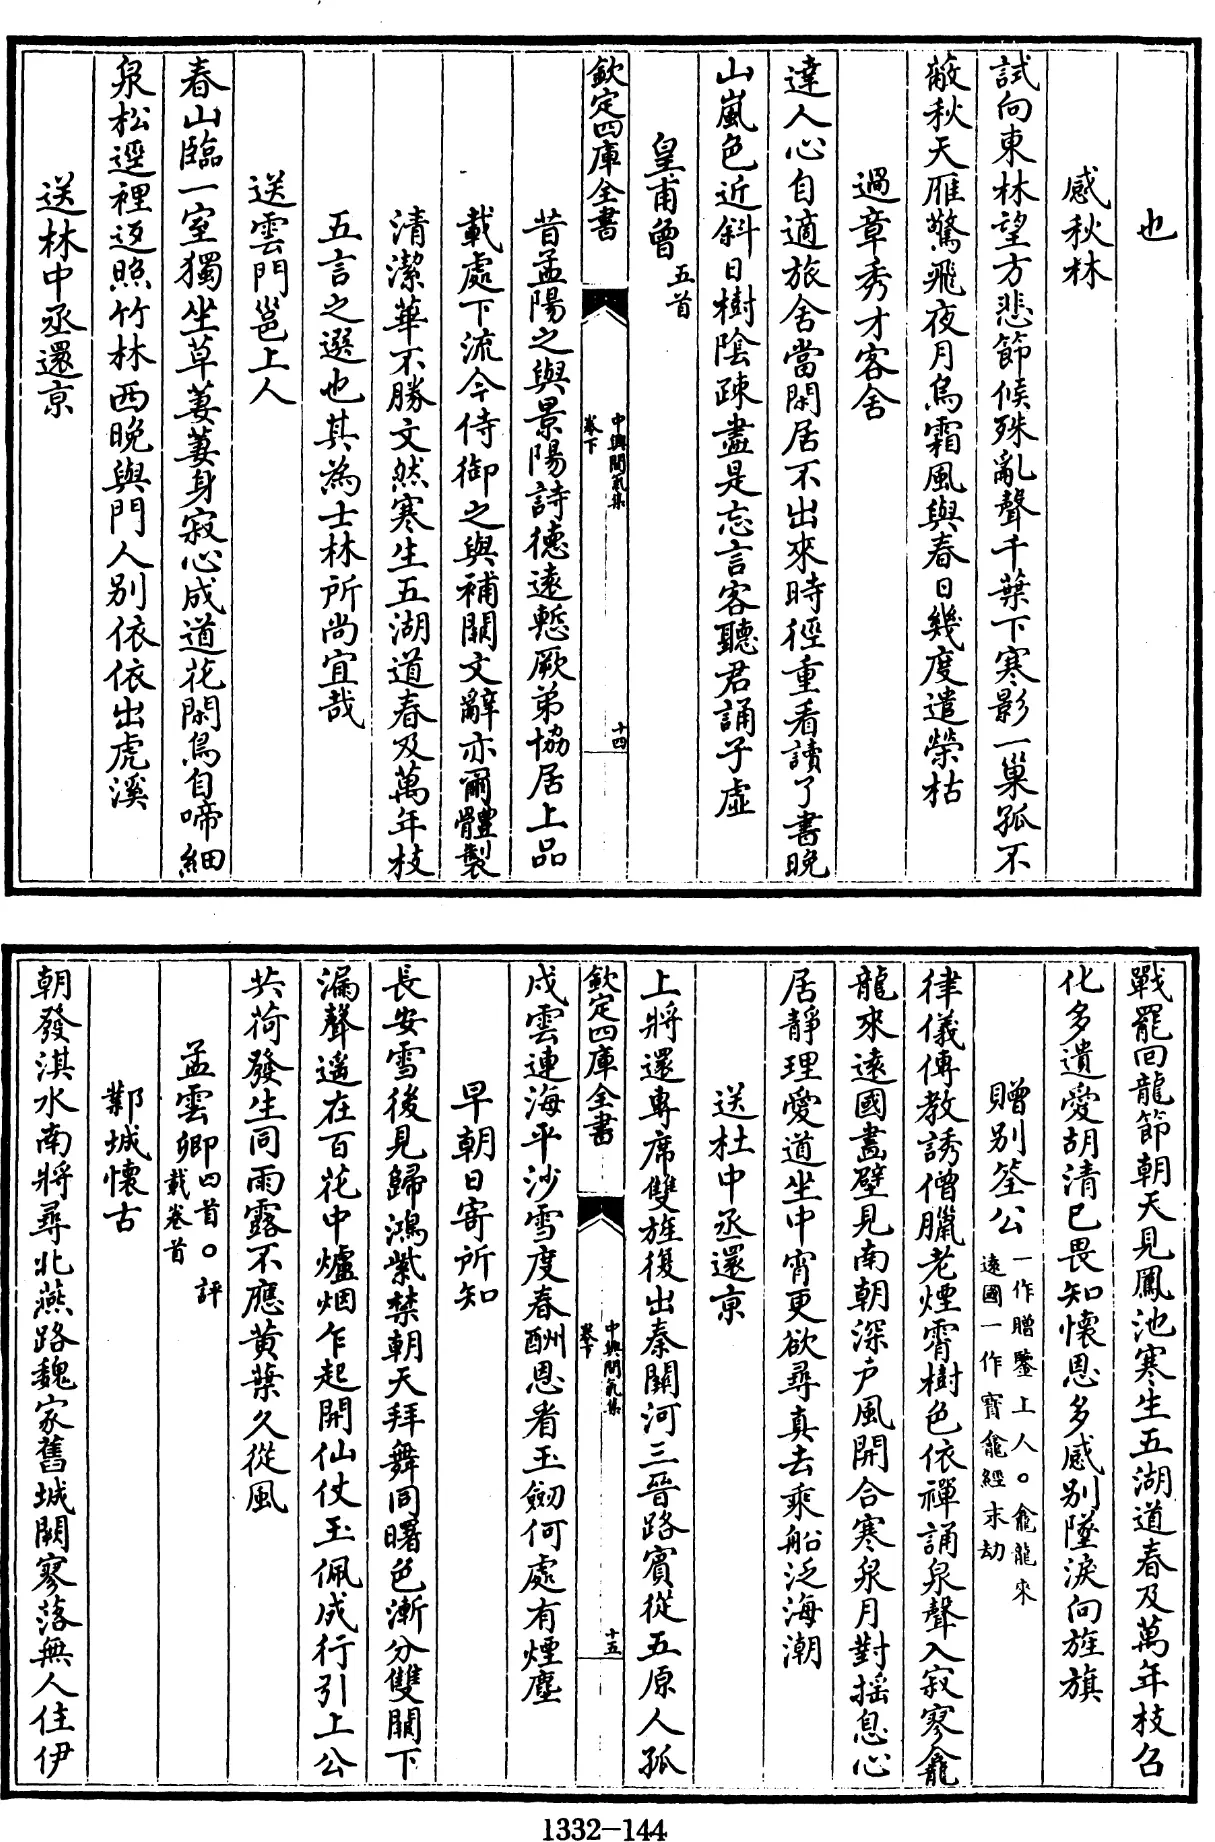 也
感秋林
試向東林望方悲節候殊亂聲千葉下寒影一巢孤不
蔽秋天雁驚飛夜月烏霜風與春日幾度遣榮枯
過章秀才客舍
達人心自適旅舍當閑居不出來時徑重看讀了書晚
山嵐色近斜日樹陰疎盡是忘言客聽君誦子虛
皇甫曾五首
欽定四庫全書
中興間氣集
卷下
十四
昔孟陽之與景陽詩德遠慙厥弟協居上品
載處下流今侍御之與補闕文辭亦爾體製
清潔華不勝文然寒生五湖道春及萬年枝
五言之選也其為士林所尚宜哉
送雲門邕上人
春山臨一室獨坐草萋萋身寂心成道花閑鳥自啼細
泉松逕裡返照竹林西晚與門人別依依出虎溪
送林中丞還京
戰罷回龍節朝天見鳳池寒生五湖道春及萬年枝召
化多遺愛胡清已畏知懷恩多感別墜淚向旌旗
贈別筌公一作贈鑒上人○龕龍來
遠國一作寶龕經末劫
律儀傳教誘僧臘老煙霄樹色依禪誦泉聲入寂寥龕
龍來遠國畫壁見南朝深户風開合寒泉月對搖息心
居靜理愛道坐中宵更欲尋真去乘船泛海潮
送杜中丞還京
上將還專席雙旌復出秦關河三晉路賓從五原人孤
欽定四庫全書
中興間氣集
卷下
十五
戍雲連海平沙雪度春酬恩看玉劒何處有煙塵
早朝日寄所知
長安雪後見歸鴻紫禁朝天拜舞同曙色漸分雙闕下
漏聲遥在百花中爐烟乍起開仙仗玉佩成行引上公
共荷發生同雨露不應黄葉久從風
孟雲卿四首○評
載卷首
鄴城懷古
朝發淇水南將尋北燕路魏家舊城闕寥落無人住伊
1332-144